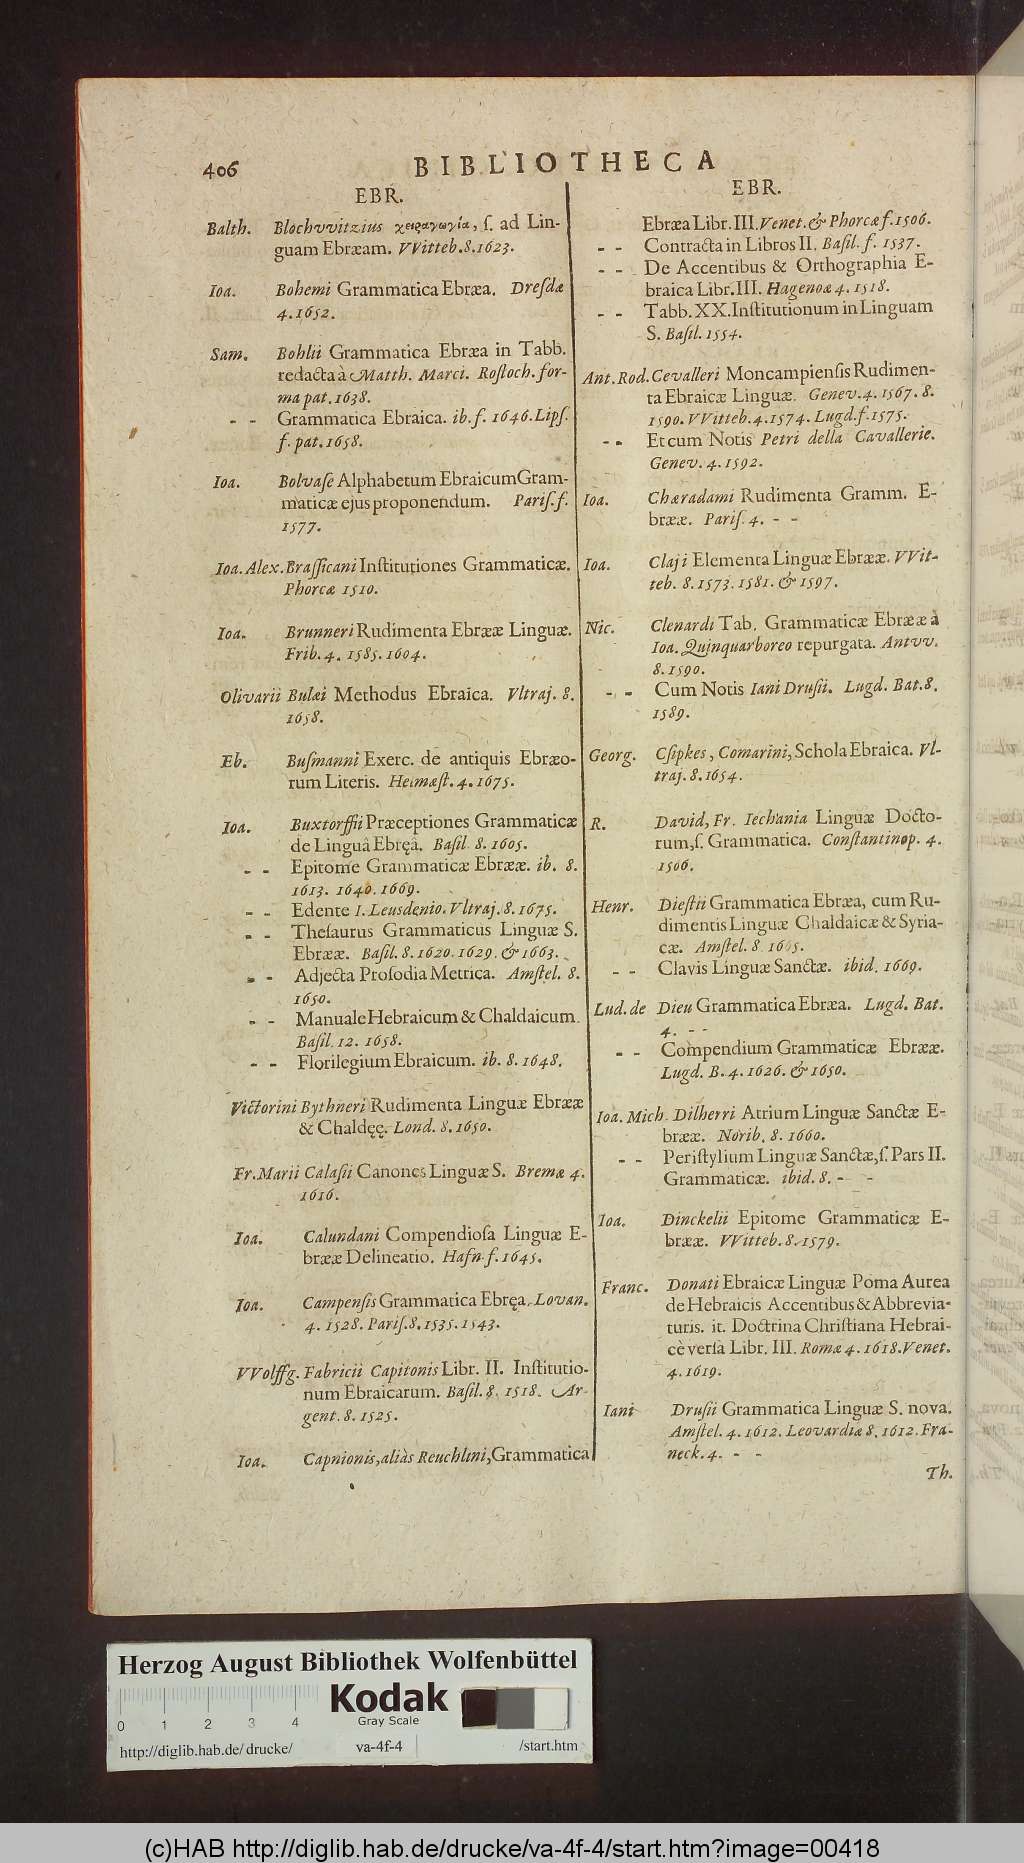 406
BIBLIOTHECA
EBR.
Balth. Blochvvitzius χειραγωγία, ſ. ad Lin-
guam Ebræam. VVitteb. 8. 1623.
Ioa. Bohemi Grammatica Ebræa. Dreſdæ
4. 1652.
Sam. Bohlii Grammatica Ebræa in Tabb.
redacta à Matth. Marci. Roſtoch. for-
ma pat. 1638.
- - Grammatica Ebraica. ib. f. 1646. Lipſ.
f. pat. 1658.
Ioa. Bolvaſe Alphabetum Ebraicum Gram-
maticæ ejus proponendum. Pariſ. f.
1577.
Ioa. Alex. Braſſicani Inſtitutiones Grammaticæ.
Phorcæ 1510.
Ioa. Brunneri Rudimenta Ebrææ Linguæ.
Frib. 4. 1585. 1604.
Olivarii Bulæi Methodus Ebraica. Vltraj. 8.
1658.
Eb. Buſmanni Exerc. de antiquis Ebræo-
rum Literis. Helmæſt. 4. 1675.
Ioa. Buxtorffii Præceptiones Grammaticæ
de Linguâ Ebręâ. Baſil. 8. 1605.
- - Epitome Grammaticæ Ebrææ. ib. 8.
1613. 1640. 1669.
- - Edente I. Leusdenio. Vltraj. 8. 1675.
- - Theſaurus Grammaticus Linguæ S.
Ebrææ. Baſil. 8. 1620. 1629. & 1663.
- - Adjecta Proſodia Metrica. Amſtel. 8.
1650.
- - Manuale Hebraicum & Chaldaicum.
Baſil. 12. 1658.
- - Florilegium Ebraicum. ib. 8. 1648.
Victorini Bythneri Rudimenta Linguæ Ebrææ
& Chaldęę. Lond. 8. 1650.
Fr. Marii Calaſii Canones Linguæ S. Bremæ 4.
1616.
Ioa. Calundani Compendioſa Linguæ E-
brææ Delineatio. Hafn. f. 1645.
Ioa. Campenſis Grammatica Ebręa. Lovan.
4. 1528. Pariſ. 8. 1535. 1543.
VVolffg. Fabricii Capitonis Libr. II. Inſtitutio-
num Ebraicarum. Baſil. 8. 1518. Ar-
gent. 8. 1525.
Ioa. Capnionis, aliàs Reuchlini, Grammatica
EBR.
Ebræa Libr. III. Venet. & Phorcæ f. 1506.
- - Contracta in Libros II. Baſil. f. 1537.
- - De Accentibus & Orthographia E-
braica Libr. III. Hagenoæ 4. 1518.
- - Tabb. XX. Inſtitutionum in Linguam
S. Baſil. 1554.
Ant. Rod. Cevalleri Moncampienſis Rudimen-
ta Ebraicæ Linguæ. Genev. 4. 1567. 8.
1590. VVitteb. 4. 1574. Lugd. f. 1575.
- - Et cum Notis Petri della Cavallerie.
Genev. 4. 1592.
Ioa. Chæradami Rudimenta Gramm. E-
brææ. Pariſ. 4. - -
Ioa. Claji Elementa Linguæ Ebrææ. VVit-
teb. 8. 1573. 1581. & 1597.
Nic. Clenardi Tab. Grammaticæ Ebrææ à
Ioa. Quinquarboreo repurgata. Antvv.
8. 1590.
- - Cum Notis Iani Druſii. Lugd. Bat. 8.
1589.
Georg. Cſipkes, Comarini, Schola Ebraica. Vl-
traj. 8. 1654.
R. David, Fr. Iechania Linguæ Docto-
rum, ſ. Grammatica. Conſtantinop. 4.
1506.
Henr. Dieſtii Grammatica Ebræa, cum Ru-
dimentis Linguæ Chaldaicæ & Syria-
cæ. Amſtel. 8. 1665.
- - Clavis Linguæ Sanctæ. ibid. 1669.
Lud. de Dieu Grammatica Ebræa. Lugd. Bat.
4. - -
- - Compendium Grammaticæ Ebrææ.
Lugd. B. 4. 1626. & 1650.
Ioa. Mich. Dilherri Atrium Linguæ Sanctæ E-
brææ. Norib. 8. 1660.
- - Periſtylium Linguæ Sanctæ, ſ. Pars II.
Grammaticæ. ibid. 8. - -
Ioa. Dinckelii Epitome Grammaticæ E-
brææ. VVitteb. 8. 1579.
Franc. Donati Ebraicæ Linguæ Poma Aurea
de Hebraicis Accentibus & Abbrevia-
turis. it. Doctrina Chriſtiana Hebrai-
cè verſa Libr. III. Romæ 4. 1618. Venet.
4. 1619.
Iani Druſii Grammatica Linguæ S. nova.
Amſtel. 4. 1612. Leovardiæ 8. 1612. Fra-
neck. 4. - -
Th.
Herzog August Bibliothek Wolfenbüttel
Kodak
Gray Scale
0 1 2 3 4
http://diglib.hab.de/drucke/ va-4f-4 /start.htm
(c)HAB http://diglib.hab.de/drucke/va-4f-4/start.htm?image=00418